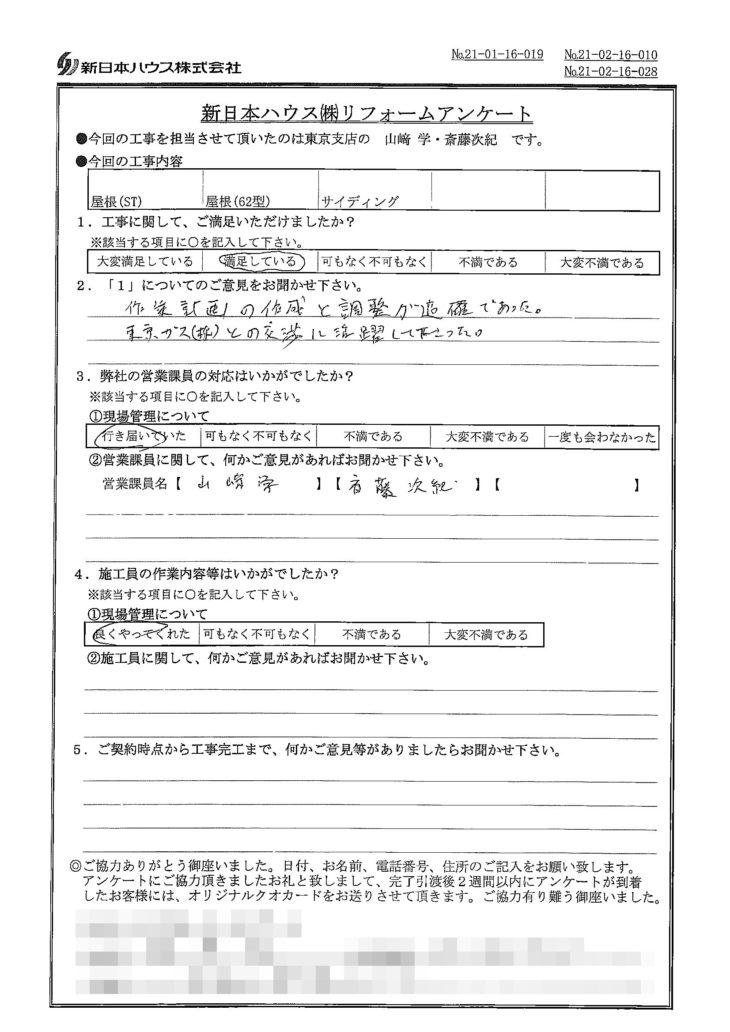 新日本ハウス株式会社
№21-01-16-019 №21-02-16-010
№21-02-16-028
新日本ハウス㈱リフォームアンケート
●今回の工事を担当させて頂いたのは東京支店の 山﨑 学・斎藤次紀 です。
●今回の工事内容
屋根(ST) 屋根(62型) サイディング
1．工事に関して、ご満足いただけましたか？
※該当する項目に○を記入して下さい。
大変満足している 満足している 可もなく不可もなく 不満である 大変不満である
2．「1」についてのご意見をお聞かせ下さい。
作業計画の作成と調整が適確であった。
東京ガス(株)との交渉に活躍して下さった。
3．弊社の営業課員の対応はいかがでしたか？
※該当する項目に○を記入して下さい。
①現場管理について
行き届いていた 可もなく不可もなく 不満である 大変不満である 一度も会わなかった
②営業課員に関して、何かご意見があればお聞かせ下さい。
営業課員名【 山﨑学 】【 斉藤次紀 】【 】
4．施工員の作業内容等はいかがでしたか？
※該当する項目に○を記入して下さい。
①現場管理について
良くやってくれた 可もなく不可もなく 不満である 大変不満である
②施工員に関して、何かご意見があればお聞かせ下さい。
5．ご契約時点から工事完工まで、何かご意見等がありましたらお聞かせ下さい。
◎ご協力ありがとう御座いました。日付、お名前、電話番号、住所のご記入をお願い致します。
アンケートにご協力頂きましたお礼と致しまして、完了引渡後２週間以内にアンケートが到着
したお客様には、オリジナルクオカードをお送りさせて頂きます。ご協力有り難う御座いました。